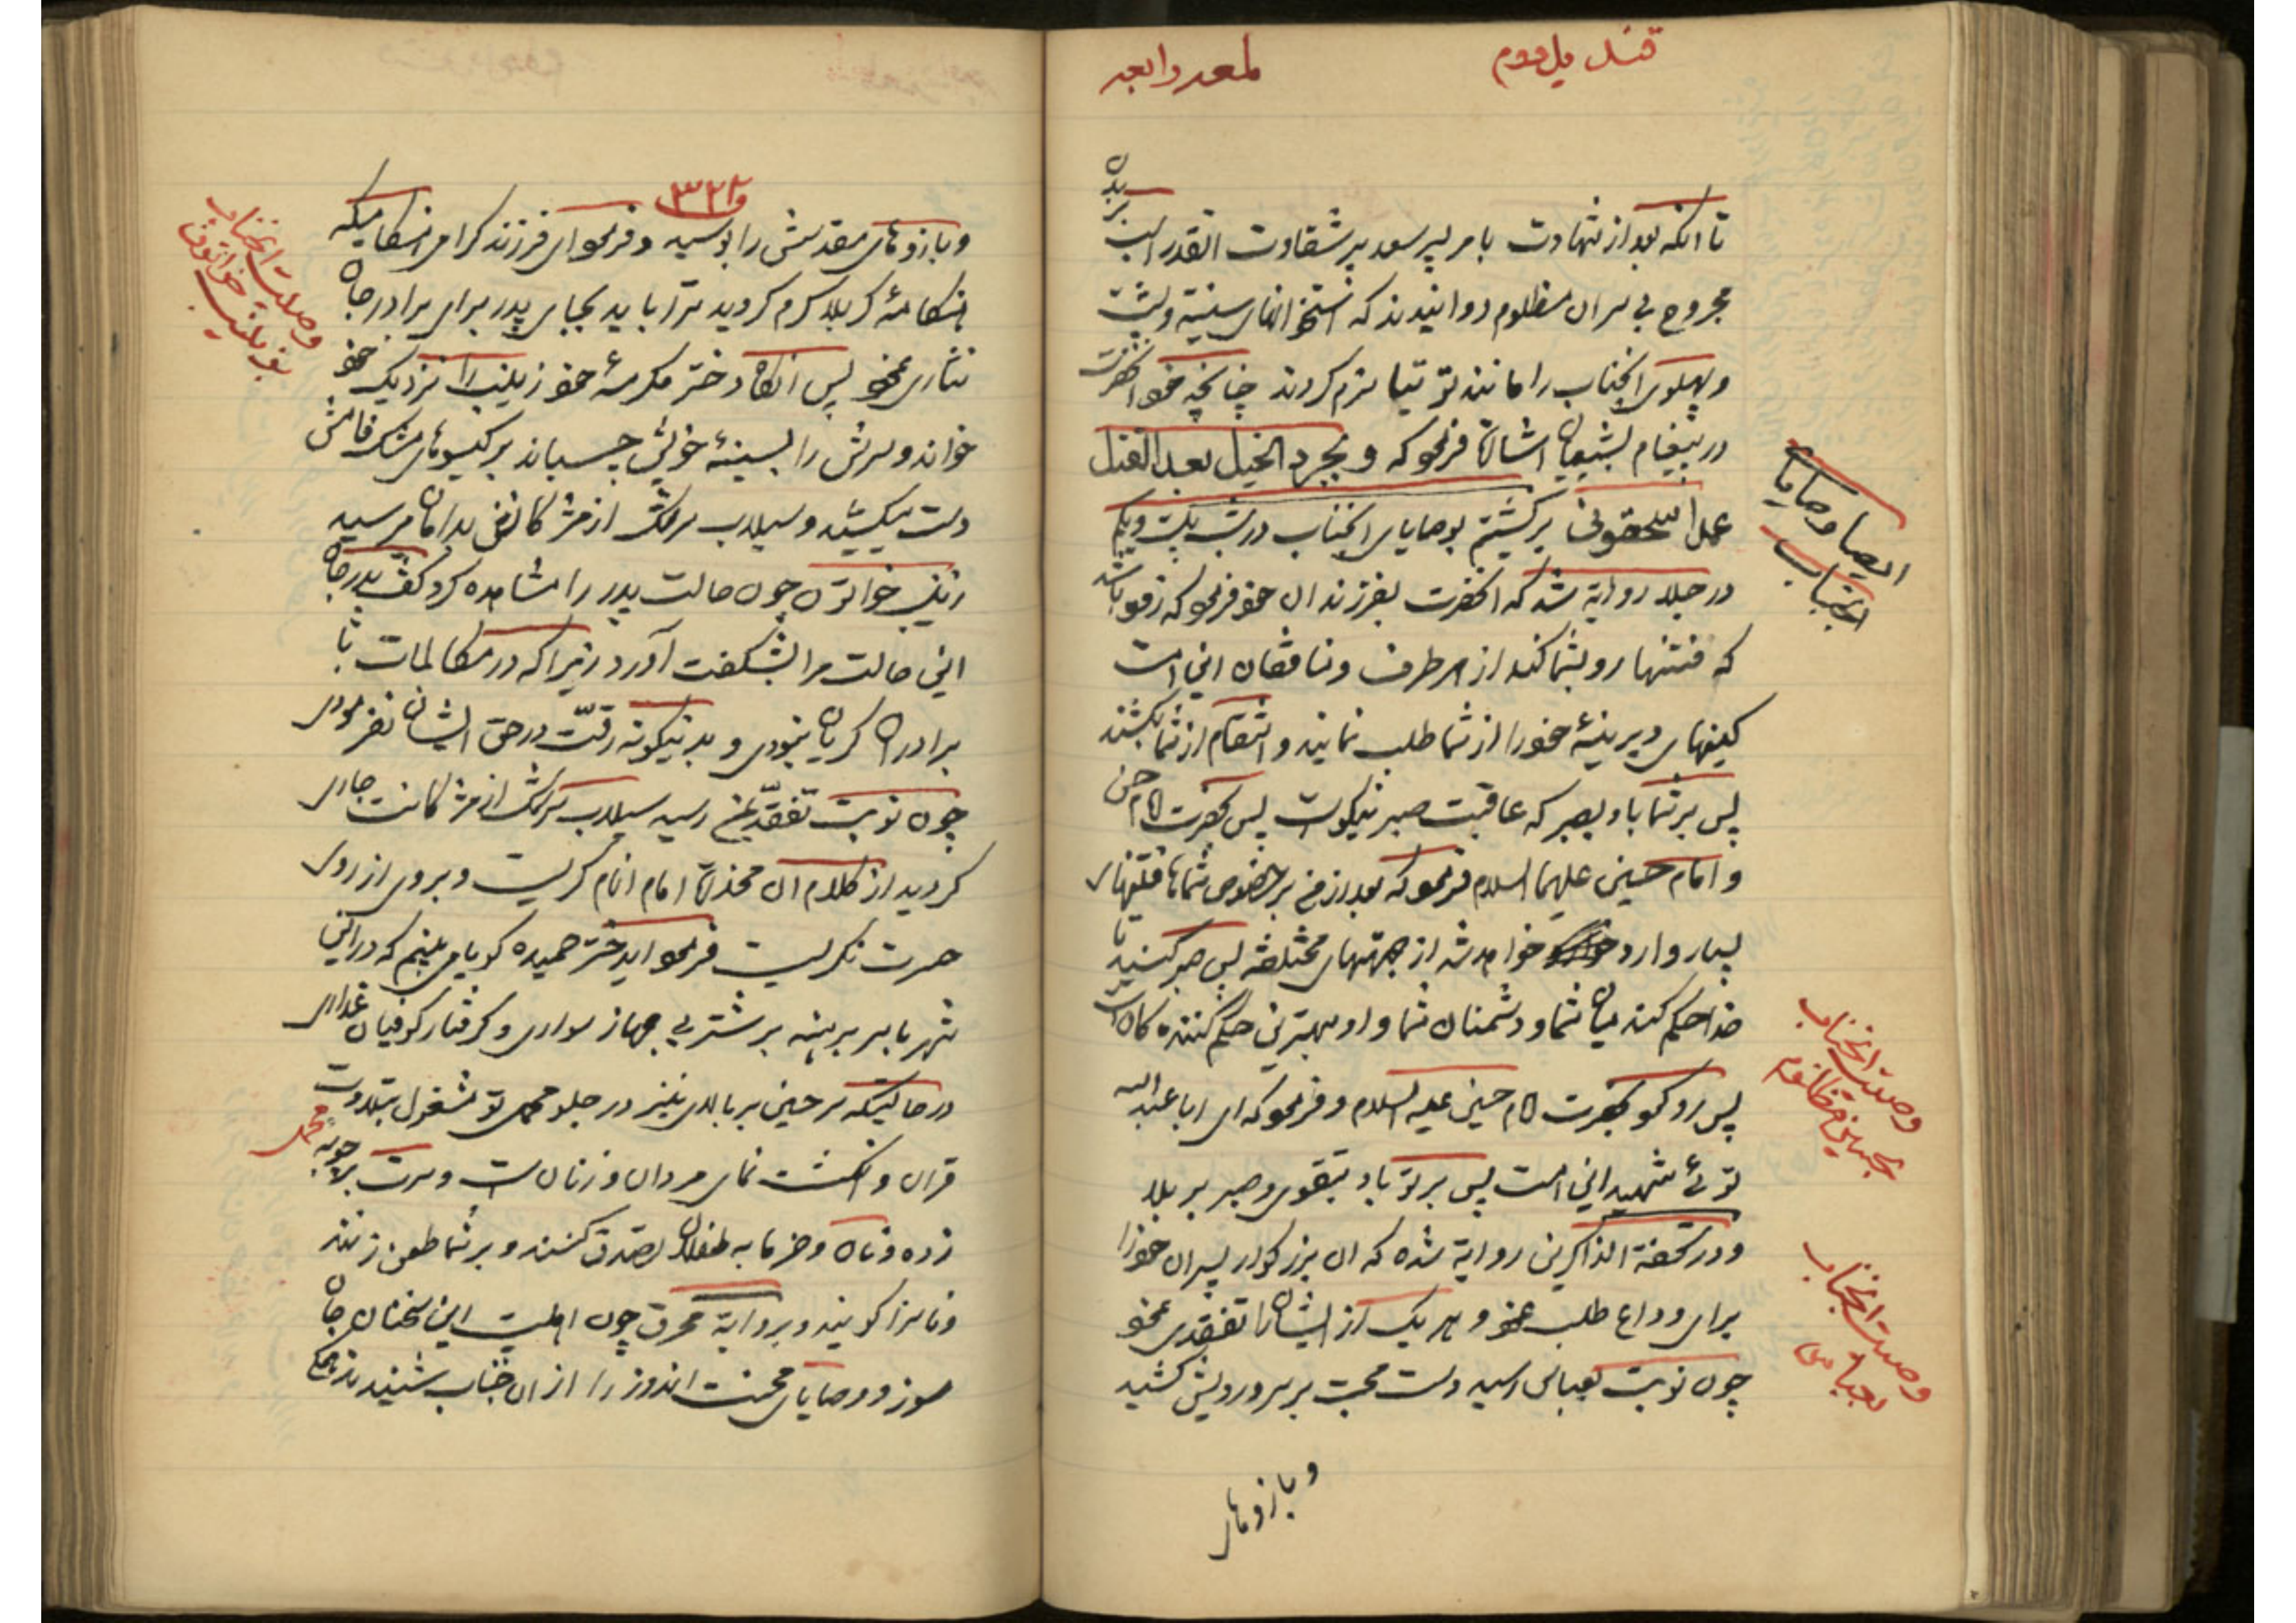 قندیل دوم
لمعه رابعه
تا آنکه بعد از شهادت بامر پسر سعد پر شقاوت القدر اسب بر بدن
مجروح بی سر ان مظلوم دوانیدند که استخوانهای سینه و پشت
و پهلوی انجناب را مانند توتیا نرم کردند چنانچه خود انحضرت
در پیغام بشیعیان اشارة فرمود که و بجرد الخیل بعد القتل
عمدا سحقونی برگشتیم بوصایای انجناب در شب بیست و یکم
در جلا روایة شد که انحضرت بفرزندان خود فرمود که زود باشد
که فتنها رو بشما کند از هر طرف و منافقان این امت
کینهای دیرینهٔ خود را از شما طلب نمایند و انتقام از شما بکشند
پس بر شما باد بصبر که عاقبت صبر نیکوست پس بحضرت امام حسن
و امام حسین علیهما السلام فرمود که بعد از من بر خصوص شماها فتنهای
بسیار وارد خواهد شد از جهتهای مختلفه پس صبر کنید تا
خدا حکم کند میان شما و دشمنان شما و او بهترین حکم کننده کان است
پس رو نمود بحضرت امام حسین علیه السلام و فرمود که ای ابا عبد الله
توئی شهید این امت پس بر تو باد بتقوی و صبر بر بلا
و در تحفة الذاکرین روایة شده که ان بزرگوار پسران خود را
برای وداع طلب نمود و هر یک از ایشانرا تفقدی نمود
چون نوبت بعباس رسید دست محبت بر سر و رویش کشید
و بازوهای
ایصا و وصایای
انجناب
وصیت انجناب
بحسین مظلوم
وصیت انجناب
بعباس
۳۲۲
و بازوهای مقدسش را بوسید و فرمود ای فرزند گرامی هنگامیکه
هنگامهٔ کربلا گرم گردید ترا باید بجای پدر برای برادر جان
نثاری نمود پس انگاه دختر مکرمهٔ خود زینب را نزدیک خود
خواند و سرش را بسینهٔ خویش چسباند بر گیسوهای مشک فامش
دست میکشید و سیلاب سرشک از مژگانش بدامان میرسید
زینب خواتون چون حالت پدر را مشاهده کرد گفت پدر جان
این حالت مرا بشگفت آورد زیرا که در مکالمات با
برادران گریان نبودی و بدینگونه رقّت در حق ایشان نفرمودی
چون نوبت تفقّد بمن رسید سیلاب سرشک از مژگانت جاری
گردید از کلام ان مخدرة امام انام گریست و بروی از روی
حسرت نگریست فرمود ایدختر حمیده گویا می بینم که در این
شهر با سر برهنه بر شتر بی جهاز سواری و گرفتار کوفیان غداری
در حالتیکه سر حسین بر بالای نیز در جلو محمل تو مشغول بتلاوت
قران و انگشت نمای مردان و زنان است و سرت بر چوبه محمل
زده و نان و خرما به طفلان تصدق کنند و بر شما طعن زنند
و ناسزا گویند و بروایة محرق چون اهلبیت این سخنان جان
سوز و وصایای محنت اندوز را از ان جناب شنیدند همگی
وصیت انجناب
بزینب خواتون